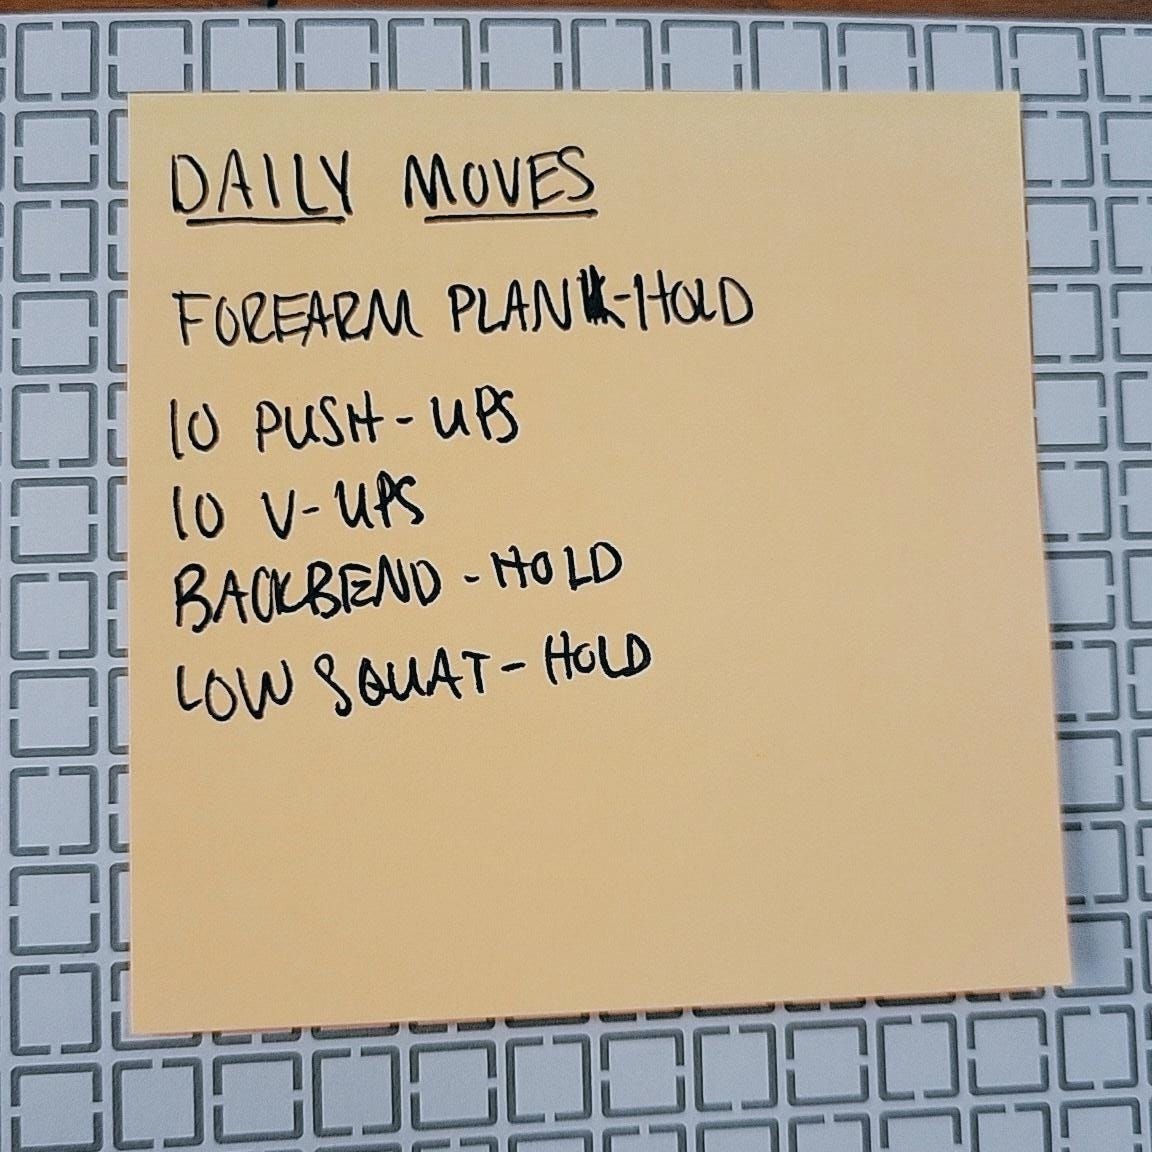 DAILY MOVES
FOREARM PLANK-HOLD
10 PUSH-UPS
10 V-UPS
BACKBEND - HOLD
LOW SQUAT - HOLD